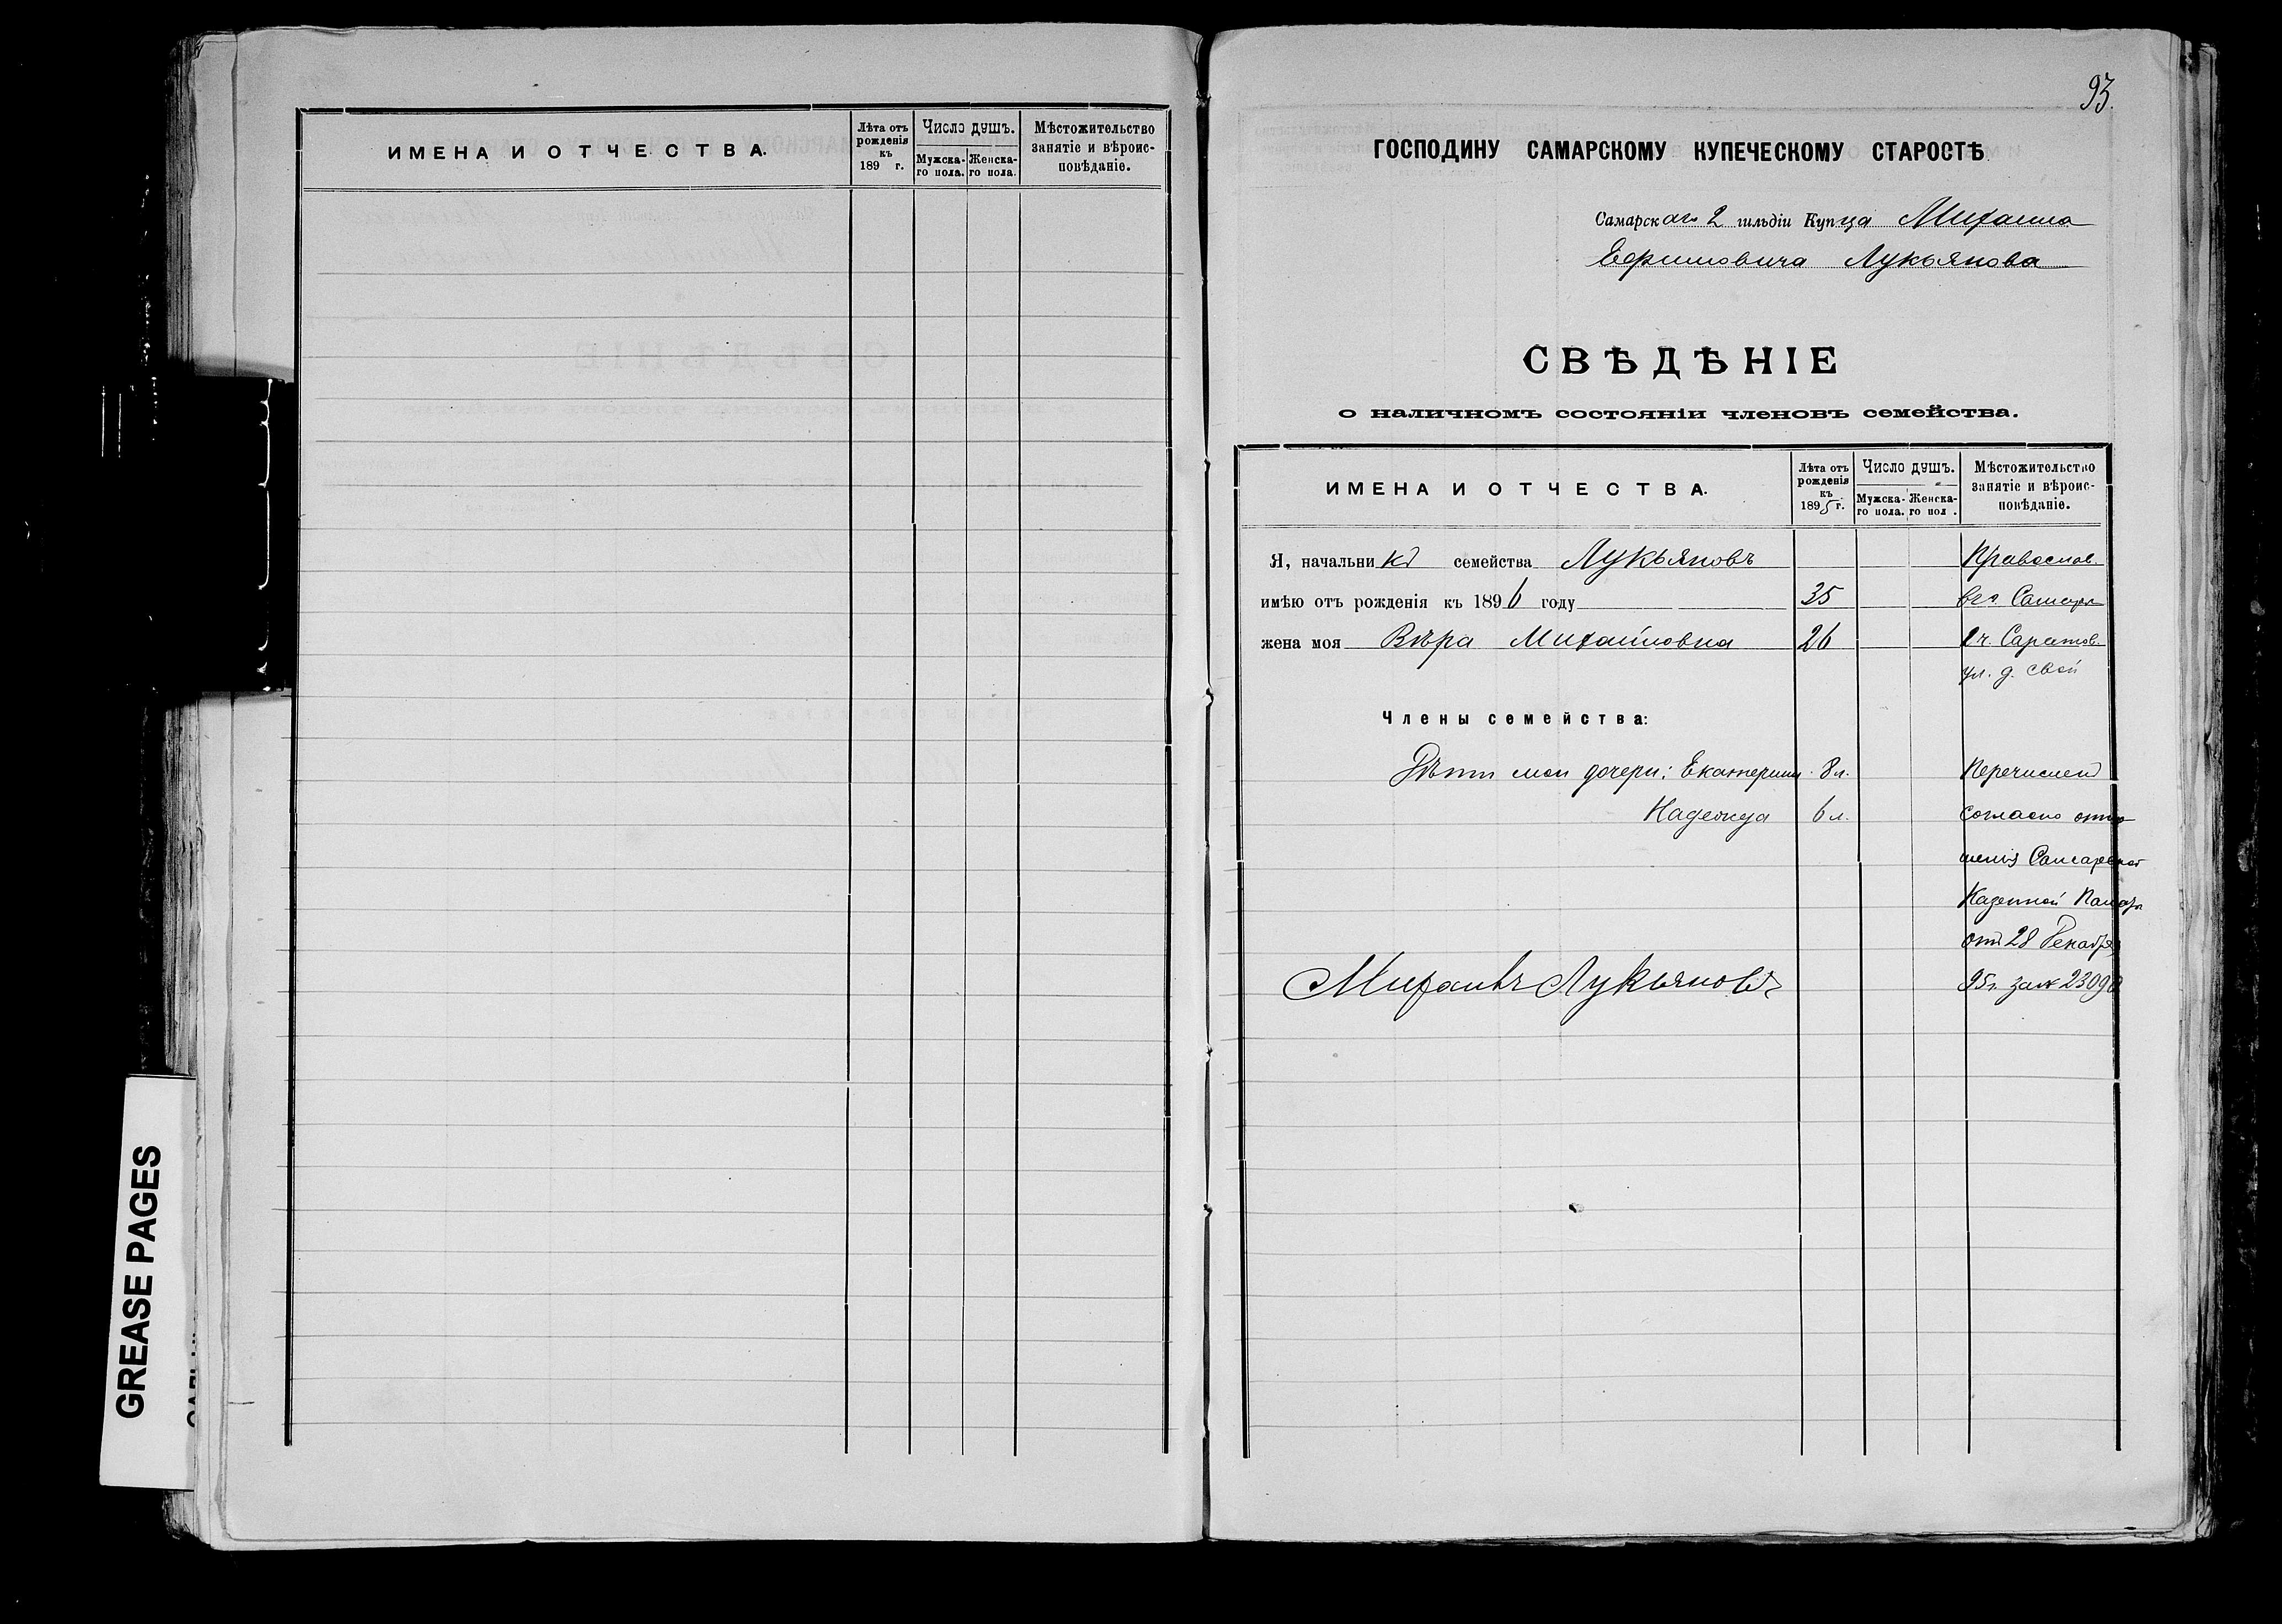 ИМЕНА И ОТЧЕСТВА.
Лѣта отъ рожденія къ 189 г.
Число душъ.
Мужска-го пола.
Женска-го пола.
Мѣстожительство занятіе и вѣроис-повѣданіе.
93.
ГОСПОДИНУ САМАРСКОМУ КУПЕЧЕСКОМУ СТАРОСТѢ
Самарскаго 2 гильдіи Купца Михаила
Ефимовича Лукьянова
СВѢДѢНІЕ
о наличномъ состояніи членовъ семейства.
ИМЕНА И ОТЧЕСТВА.
Лѣта отъ рожденія къ 1895 г.
Число душъ.
Мужска-го пола.
Женска-го пол .
Мѣстожительство занятіе и вѣроис-повѣданіе.
Я, начальникъ семейства Лукьяновъ Православ.
имѣю отъ рожденія къ 1896 году 35 въ г. Самара
жена моя Вѣра Михайловна 26 2 ч. Саратов.
ул. д. свой
Члены семейства:
Дѣти мои дочери: Екатерина 8 л. Перечисленъ
Надежда 6 л. согласно отно
шенія Самарской
Казенной Палаты
отъ 28 Декабря
Михаилъ Лукьяновъ 95 г. за №
GREASE PAGES